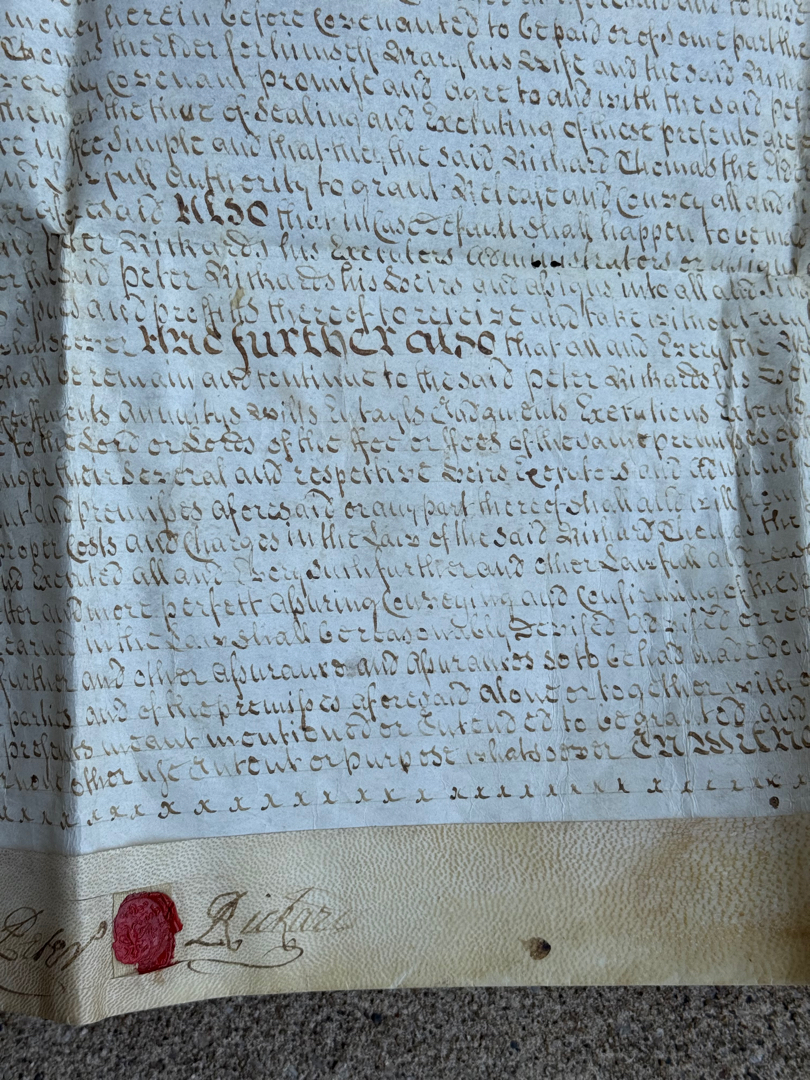 money herein before Covenanted to be paid or of some part th
Thomas the Elder for himself Mary his Wife and the said Rich
Covenant promise and agree to and with the said pe
the time of Sealing and Executing of these presents are
in ffee Simple and that they the said Richard Thomas the Elde
full authority to grant Release and Convey all and
said Also that in Case Default shall happen to be ma
peter Rickards his Executors Administrators or assigns
said peter Rickards his Heirs and assigns into all and
and proffitts thereof to receive and take without
And further also that all and Every the
shall be remain and continue to the said peter Rickards his
Annuitys Wills Entayls Judgments Executions Extents
to the Lord or Lords of the ffee or ffees of the same premisses
their Several and respective Heirs Executors and Administ
and premisses aforesaid or any part thereof shall and will
proper Costs and Charges in the Law of the said Richard Thomas the
nd Executed all and Every Such further and other Lawfull and
and more perfect assuring Conveying and Confirming of the
earned in the Law shall be reasonably Devised advised or re
further and other assurance and assurances so to be had made
parties and of the premisses aforesaid alone or together with
presents meant mentioned or Intended to be granted and
other use Intent or purpose whatsoever In Witne
x x x x x x x x x x x x x x x x x x x x x x x x x x
Peter Rickard